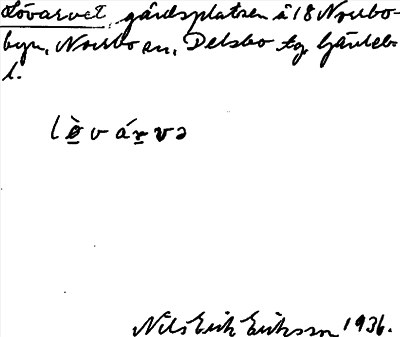 Lövarvet, gårdsplatsen å 18 Norrbo-
byn, Norrbo sn, Delsbo tg. Gävleb.
l.
lè̠vár̠və
Nils Erik Eriksson 1936.